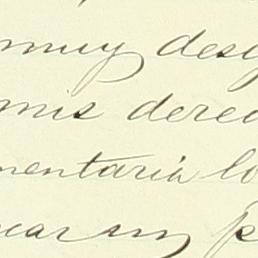 muy desg
mis derec
mentaria lo
car su p